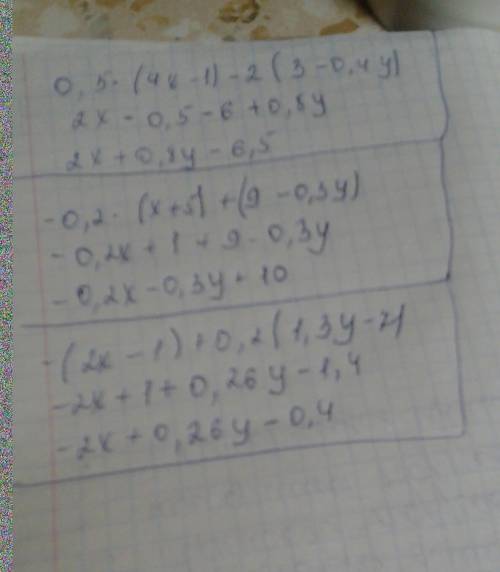 0,5·(4x-1)-2(3-0,4y)
2x-0,5-6+0,8y
2x+0,8y-6,5
-0,2·(x+5)+(9-0,3y)
-0,2x+1+9-0,3y
-0,2x-0,3y+10
-(2x-1)+0,2(1,3y-7)
-2x+1+0,26y-1,4
-2x+0,26y-0,4